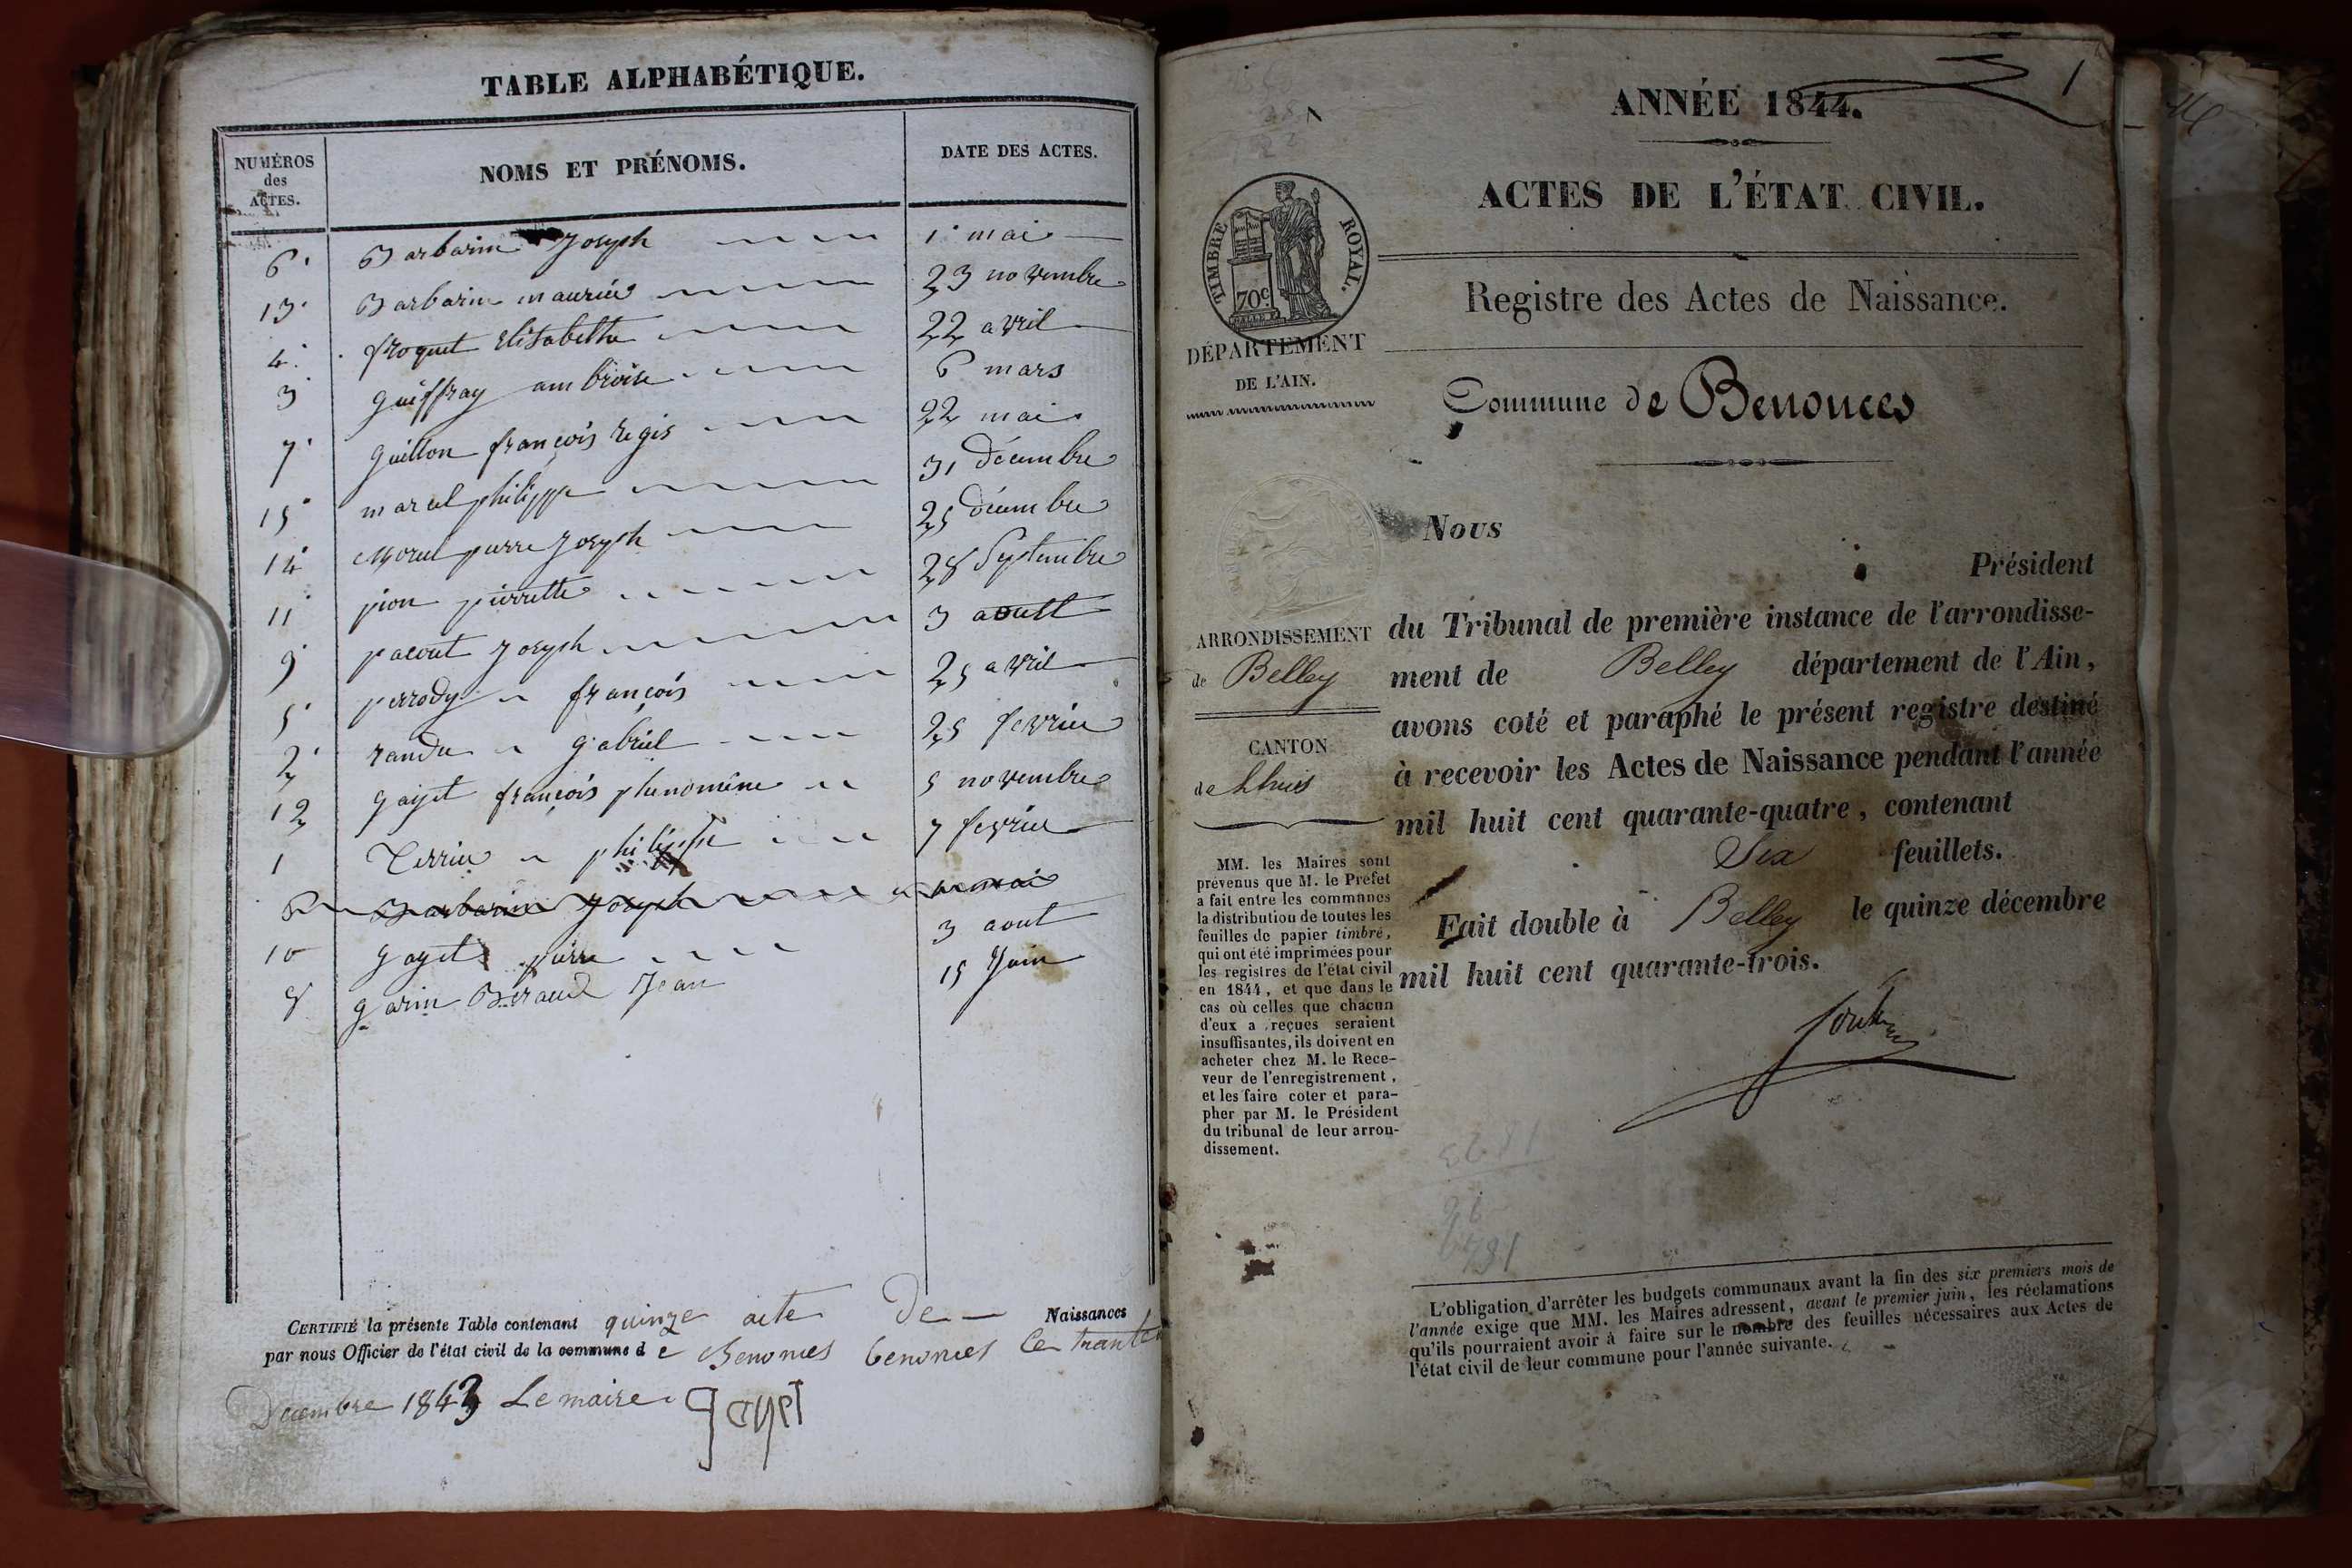 TABLE ALPHABÉTIQUE.
NUMÉROS des ACTES. NOMS ET PRÉNOMS. DATE DES ACTES.
6 Barbarin Joseph 1 mai
13 Barbarin maurice 23 novembre
4 froquet Elisabeth 22 avril
3 guiffray ambroise 6 mars
7 guitton françois regis 22 mai
15 marcel philippe 31 décembre
14 Morel pierre Joseph 25 décembre
11 pion pierrette 28 Septembre
9 Joseph 3 aoust
5 perrody françois 25 avril
2 randu gabriel 25 fevrier
12 gayet françois phenomène 5 novembre
1 Terrier philippe 7 fevrier
6 Barbarin Joseph 1 mai
10 gayet pierre 3 aout
8 garin Beraud Jean 15 Juin
CERTIFIÉ la présente Table contenant quinze acte De Naissances
par nous Officier de l'état civil de la commune de Benonces benonces Ce trante
Decembre 1843 Le maire Gayet
1
ANNÉE 1844.
ACTES DE L'ÉTAT CIVIL.
Registre des Actes de Naissance.
TIMBRE ROYAL.
70c
DÉPARTEMENT
DE L'AIN.
Commune de Benonces
Nous
Président
du Tribunal de première instance de l'arrondisse-
ment de Belley département de l'Ain,
avons coté et paraphé le présent registre destiné
à recevoir les Actes de Naissance pendant l'année
mil huit cent quarante-quatre, contenant
Six feuillets.
Fait double à Belley le quinze décembre
mil huit cent quarante-trois.
ARRONDISSEMENT
de Belley
CANTON
de Lhuis
MM. les Maires sont
prévenus que M. le Préfet
a fait entre les communes
la distribution de toutes les
feuilles de papier timbré,
qui ont été imprimées pour
les registres de l'état civil
en 1844, et que dans le
cas où celles que chacun
d'eux a reçues seraient
insuffisantes, ils doivent en
acheter chez M. le Rece-
veur de l'enregistrement,
et les faire coter et para-
pher par M. le Président
du tribunal de leur arron-
dissement.
L'obligation d'arrêter les budgets communaux avant la fin des six premiers mois de
l'année exige que MM. les Maires adressent, avant le premier juin, les réclamations
qu'ils pourraient avoir à faire sur le nombre des feuilles nécessaires aux Actes de
l'état civil de leur commune pour l'année suivante.